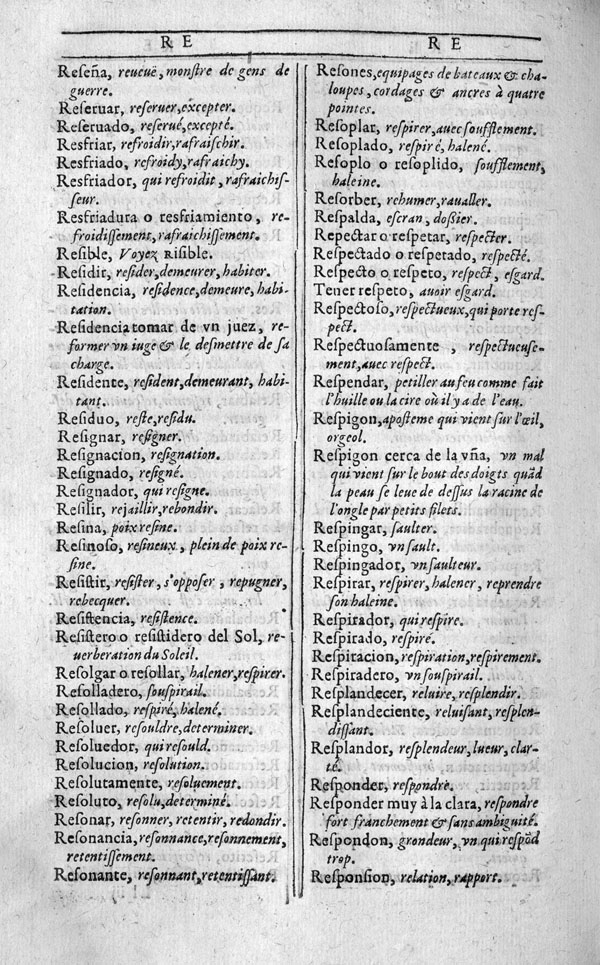 R E
Reseña, reueuë, monstre de gens de
guerre.
Reseruar, reseruer, excepter.
Reseruado, reserué, excepté.
Resfriar, refroidir, rafraischir.
Resfriado, refroidy, rafraichy.
Resfriador, qui refroidit, rafraichis-
seur.
Resfriadura o resfriamiento, re-
froidissement, rafraichissement.
Resible, Voyez Risible.
Residir, resider, demeurer, habiter.
Residencia, residence, demeure, habi-
tation.
Residencia tomar de vn juez, re-
former vn iuge & le desmettre de sa
charge.
Residente, resident, demeurant, habi-
tant.
Residuo, reste, residu.
Resignar, resigner.
Resignacion, resignation.
Resignado, resigné.
Resignador, qui resigne.
Resilir, rejaillir, rebondir.
Resina, poix resine.
Resinoso, resineux, plein de poix re-
sine.
Resistir, resister, s'opposer, repugner,
rebecquer.
Resistencia, resistence.
Resistero o resistidero del Sol, re-
uerberation du Soleil.
Resolgar o resollar, halener, respirer.
Resolladero, souspirail.
Resollado, respiré, halené.
Resoluer, resouldre, determiner.
Resoluedor, qui resould.
Resolucion, resolution.
Resolutamente, resoluement.
Resoluto, resolu, determiné.
Resonar, resonner, retentir, redondir.
Resonancia, resonnance, resonnement,
retentissement.
Resonante, resonnant, retentissant.
R E
Resones, equipages de bateaux & cha-
loupes, cordages & ancres à quatre
pointes.
Resoplar, respirer, auec soufflement.
Resoplado, respiré, halené.
Resoplo o resoplido, soufflement,
haleine.
Resorber, rehumer, raualler.
Respalda, escran, dossier.
Repectar o respetar, respecter.
Respectado o respetado, respecté.
Respecto o respeto, respect, esgard.
Tener respeto, auoir esgard.
Respectoso, respectueux, qui porte res-
pect.
Respectuosamente, respectueuse-
ment, auec respect.
Respendar, petiller au feu comme fait
l'huille ou la cire où il y a de l'eau.
Respigon, aposteme qui vient sur l'œil,
orgeol.
Respigon cerca de la vña, vn mal
qui vient sur le bout des doigts quãd
la peau se leue de dessus la racine de
l'ongle par petits filets.
Respingar, saulter.
Respingo, vn sault.
Respingador, vn saulteur.
Respirar, respirer, halener, reprendre
son haleine.
Respirador, qui respire.
Respirado, respiré.
Respiracion, respiration, respirement.
Respiradero, vn souspirail.
Resplandecer, reluire, resplendir.
Resplandeciente, reluisant, resplen-
dissant.
Resplandor, resplendeur, lueur, clar-
té.
Responder, respondre.
Responder muy à la clara, respondre
fort franchement & sans ambiguité.
Respondon, grondeur, vn qui respõd
trop.
Responsion, relation, rapport.